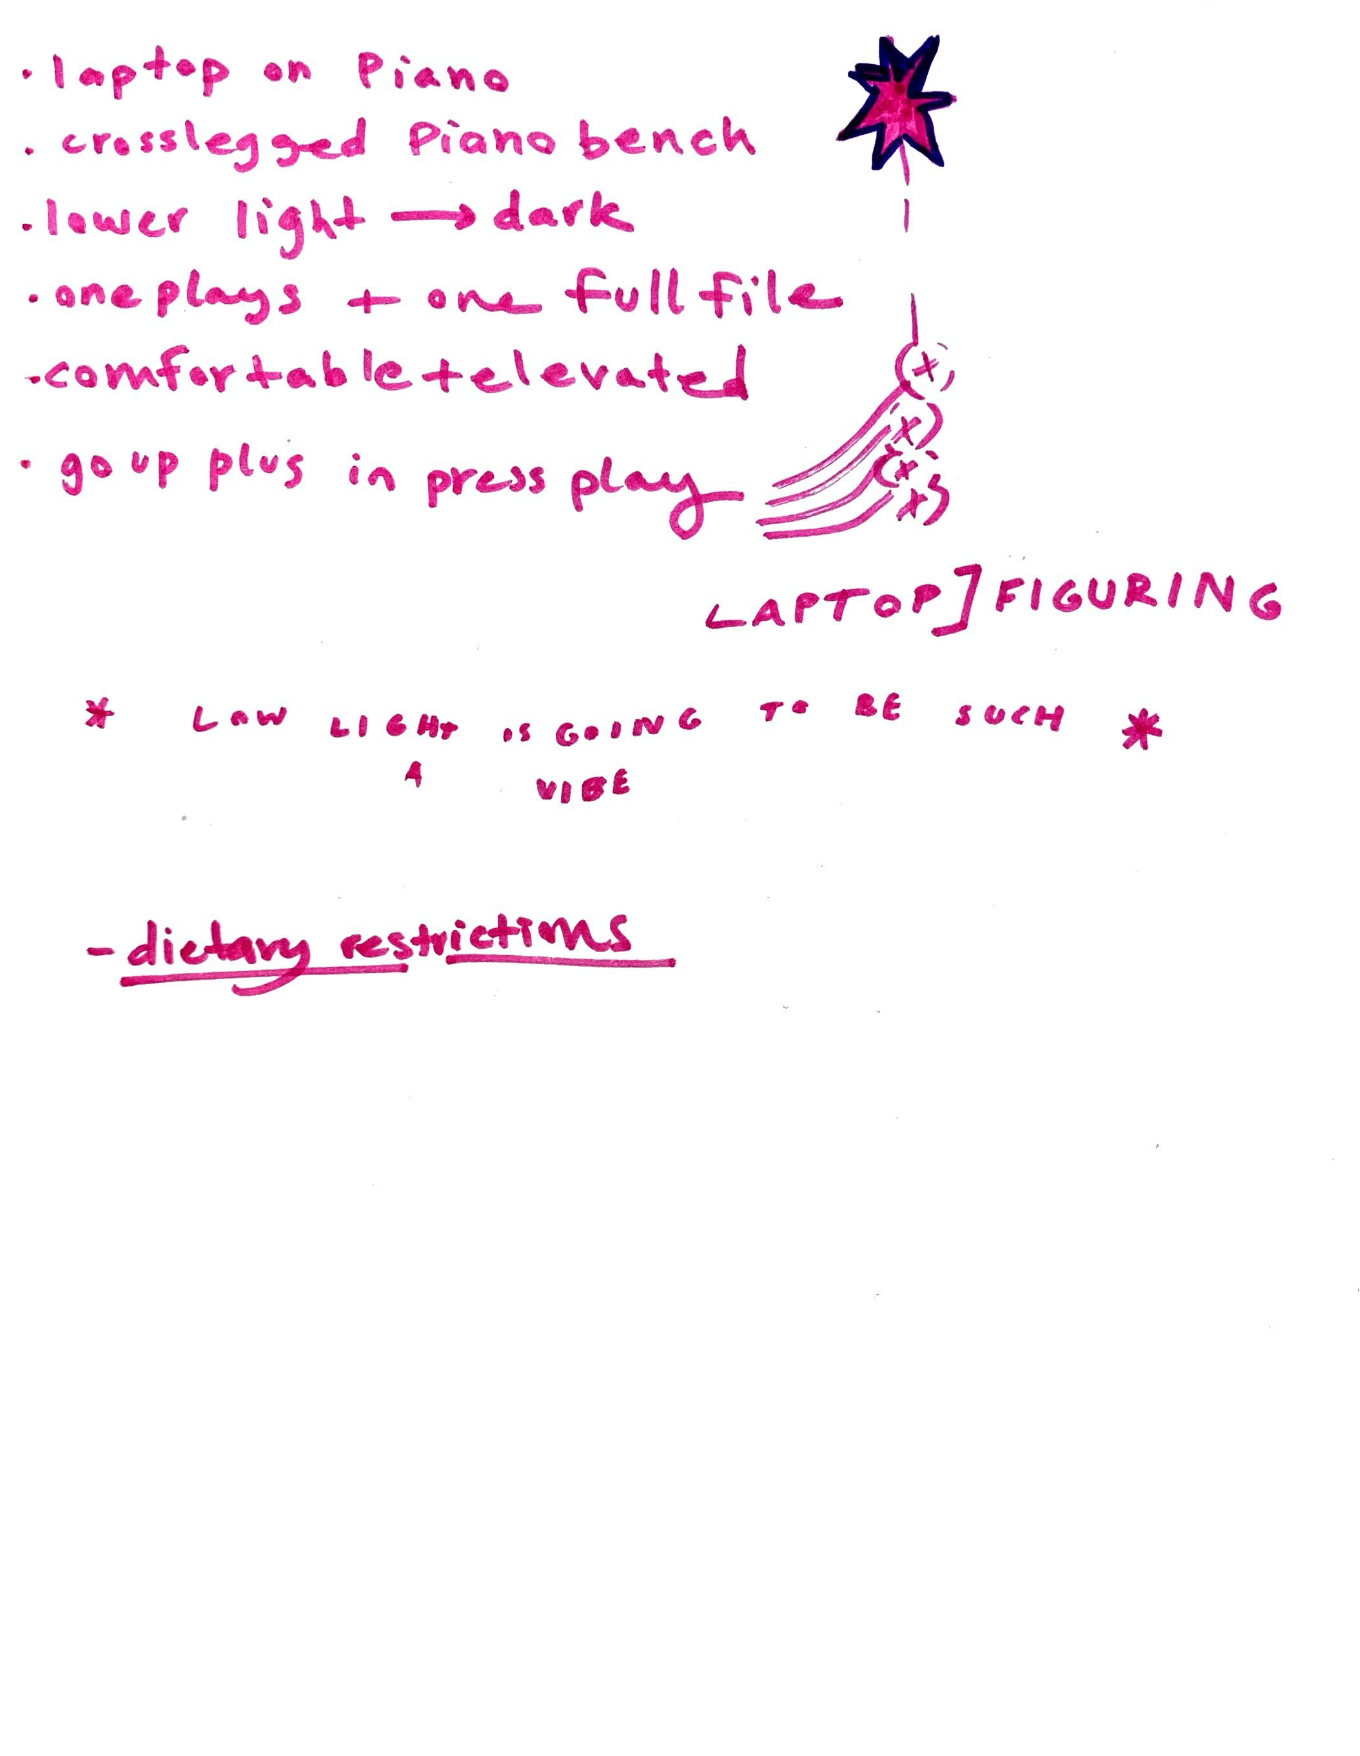 · laptop on Piano
· crosslegged Piano bench
· lower light → dark
· one plays + one full file
· comfortable + elevated
· go up plus in press play
(x)
(x)
(x)
x)
LAPTOP] FIGURING
* LOW LIGHT IS GOING TO BE SUCH *
A VIBE
- dietary restrictions